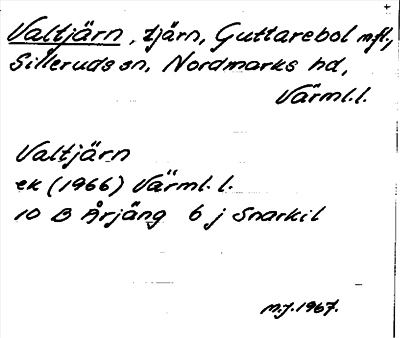 Valtjärn, tjärn, Guttarebol m.fl.,
Silleruds sn, Nordmarks hd,
Värml.l.
Valtjärn
ek (1966) Värml. l.
10 B Årjäng 6 j Snarkil
M.J. 1967.